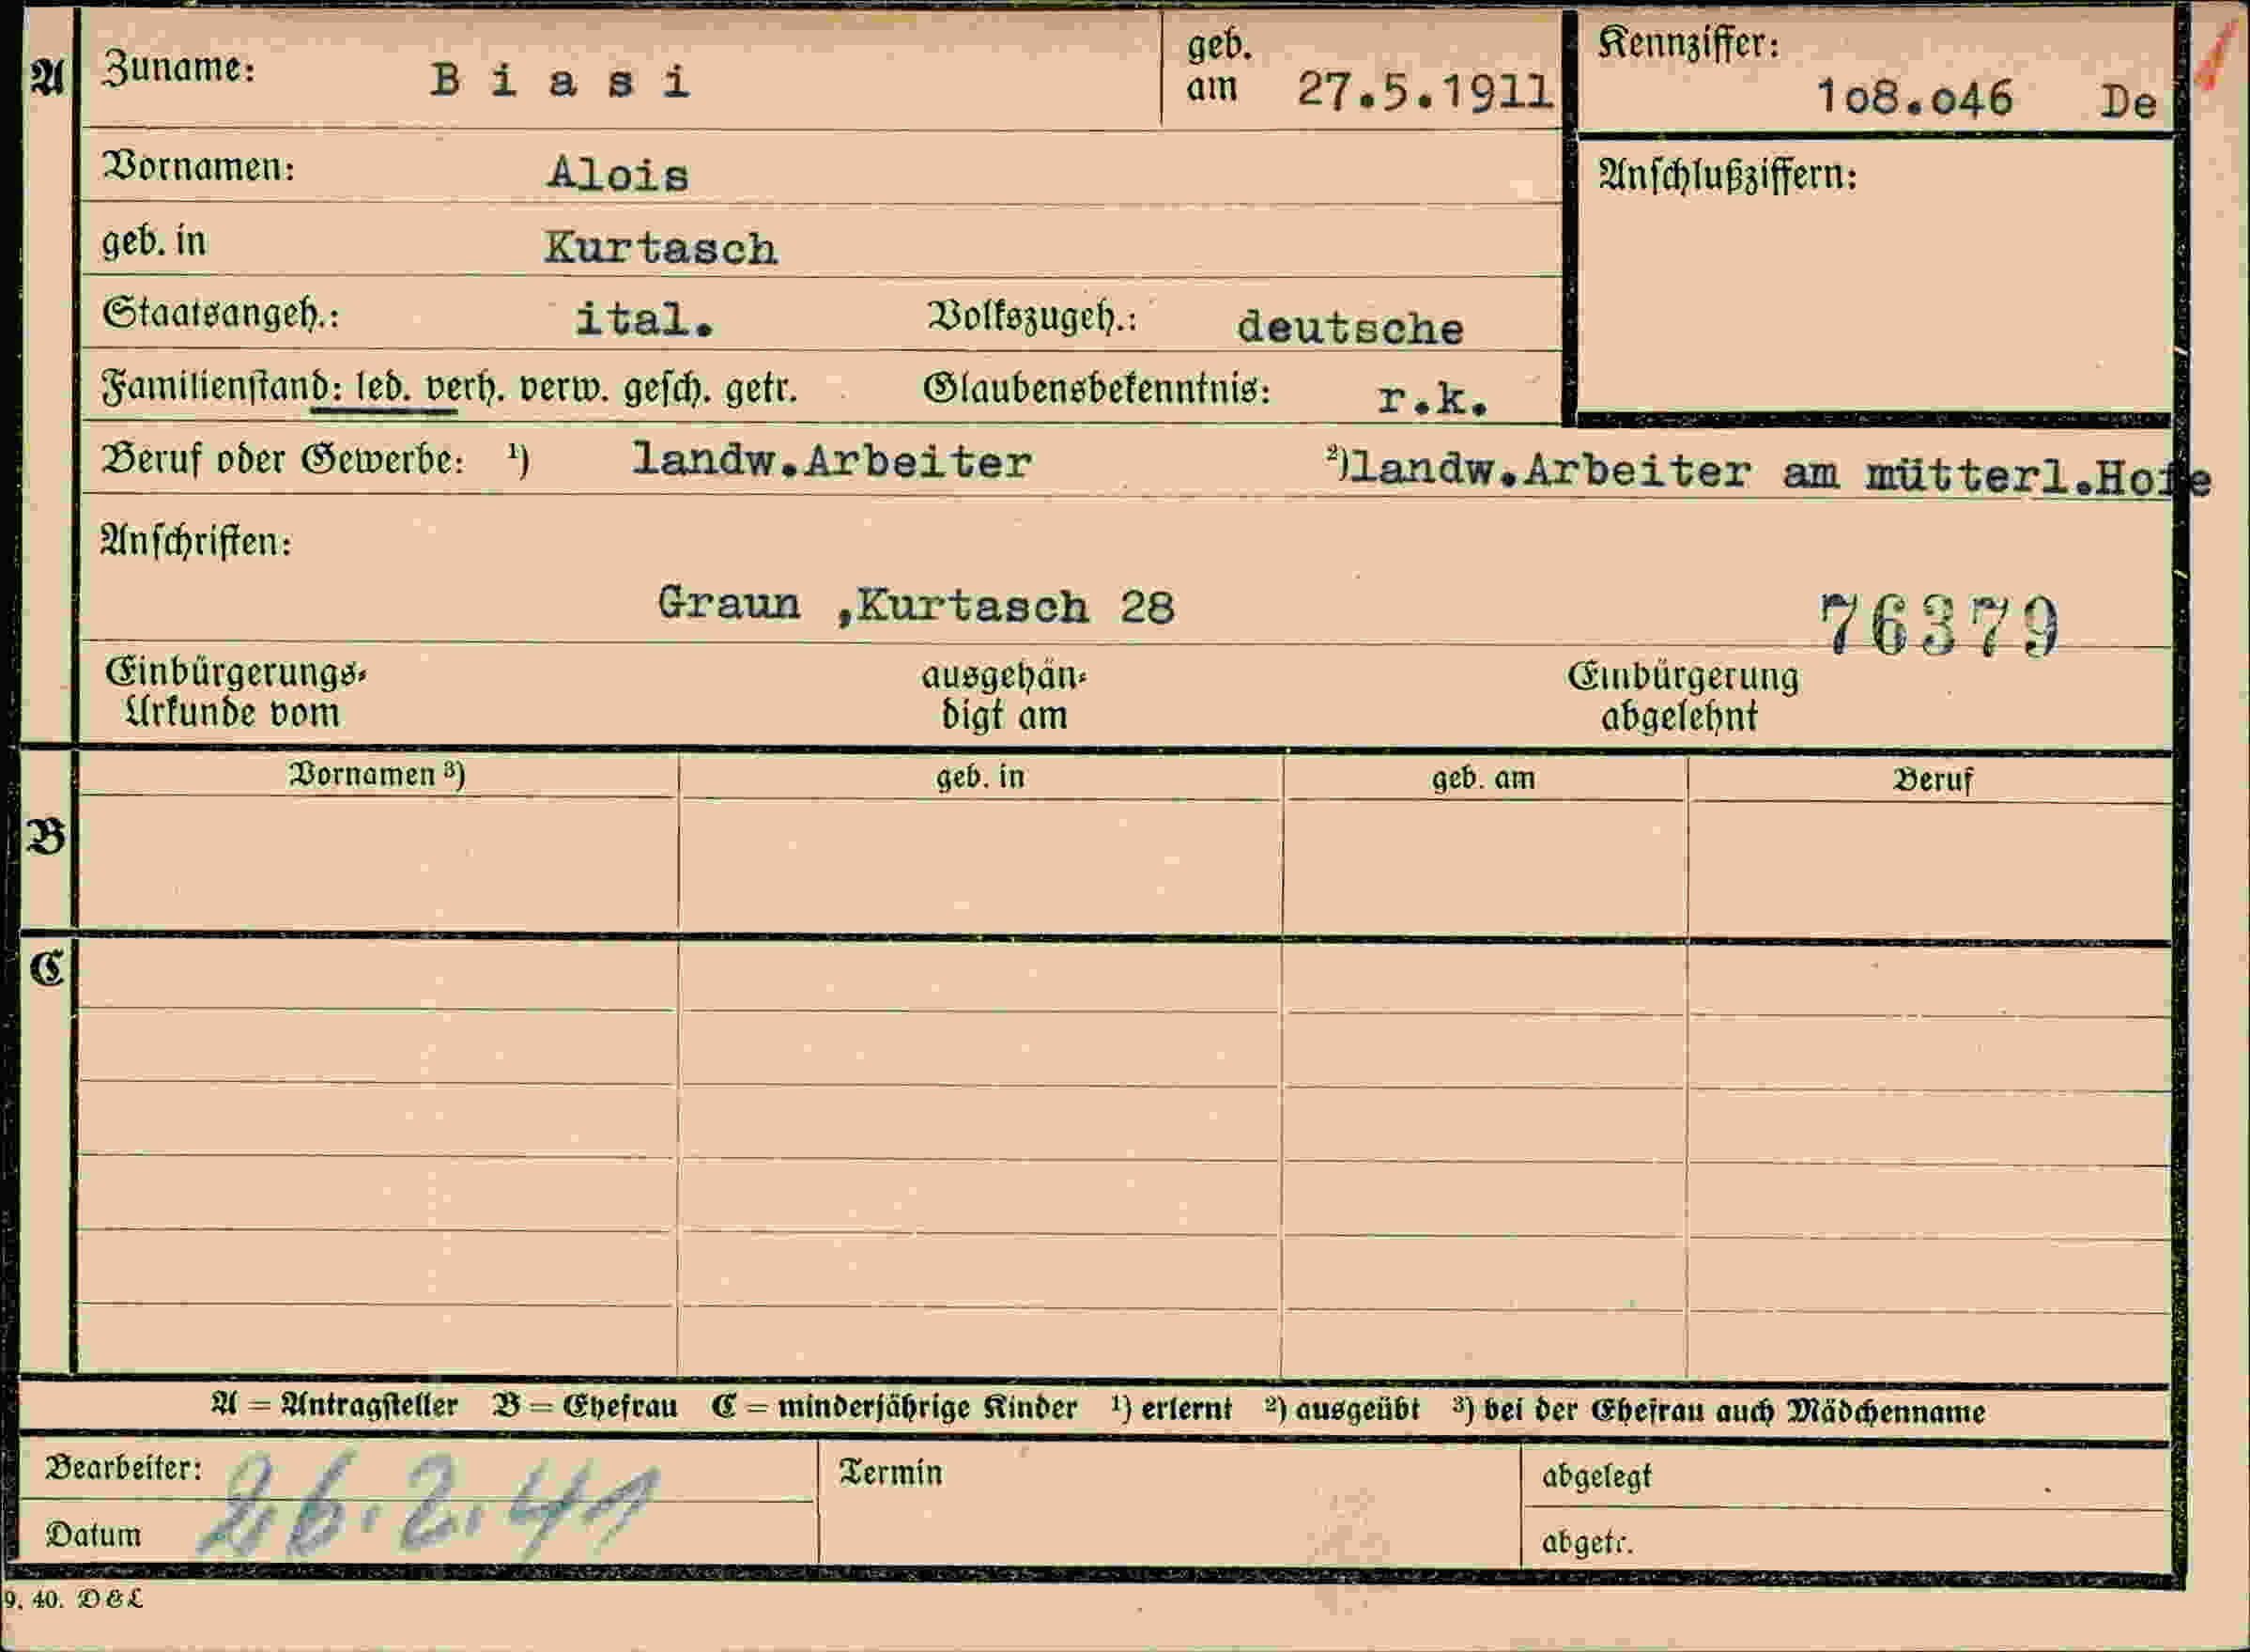 A Zuname: B i a s i geb. am 27.5.1911 Kennziffer: 1o8.o46 De
Vornamen: Alois Anschlußziffern:
geb. in Kurtasch
Staatsangeh.: ital. Volkszugeh.: deutsche
Familienstand: led. verh. verw. gesch. getr. Glaubensbekenntnis: r.k.
Beruf oder Gewerbe: ¹) landw.Arbeiter ²)landw.Arbeiter am mütterl.Hofe
Anschriften:
Graun ,Kurtasch 28 76379
Einbürgerungs- ausgehän- Einbürgerung
Urkunde vom digt am abgelehnt
Vornamen ³) geb. in geb. am Beruf
B
C
A = Antragsteller B = Ehefrau C = minderjährige Kinder ¹) erlernt ²) ausgeübt ³) bei der Ehefrau auch Mädchenname
Bearbeiter: Termin abgelegt
Datum 26.2.41 abgetr.
9. 40. D & L